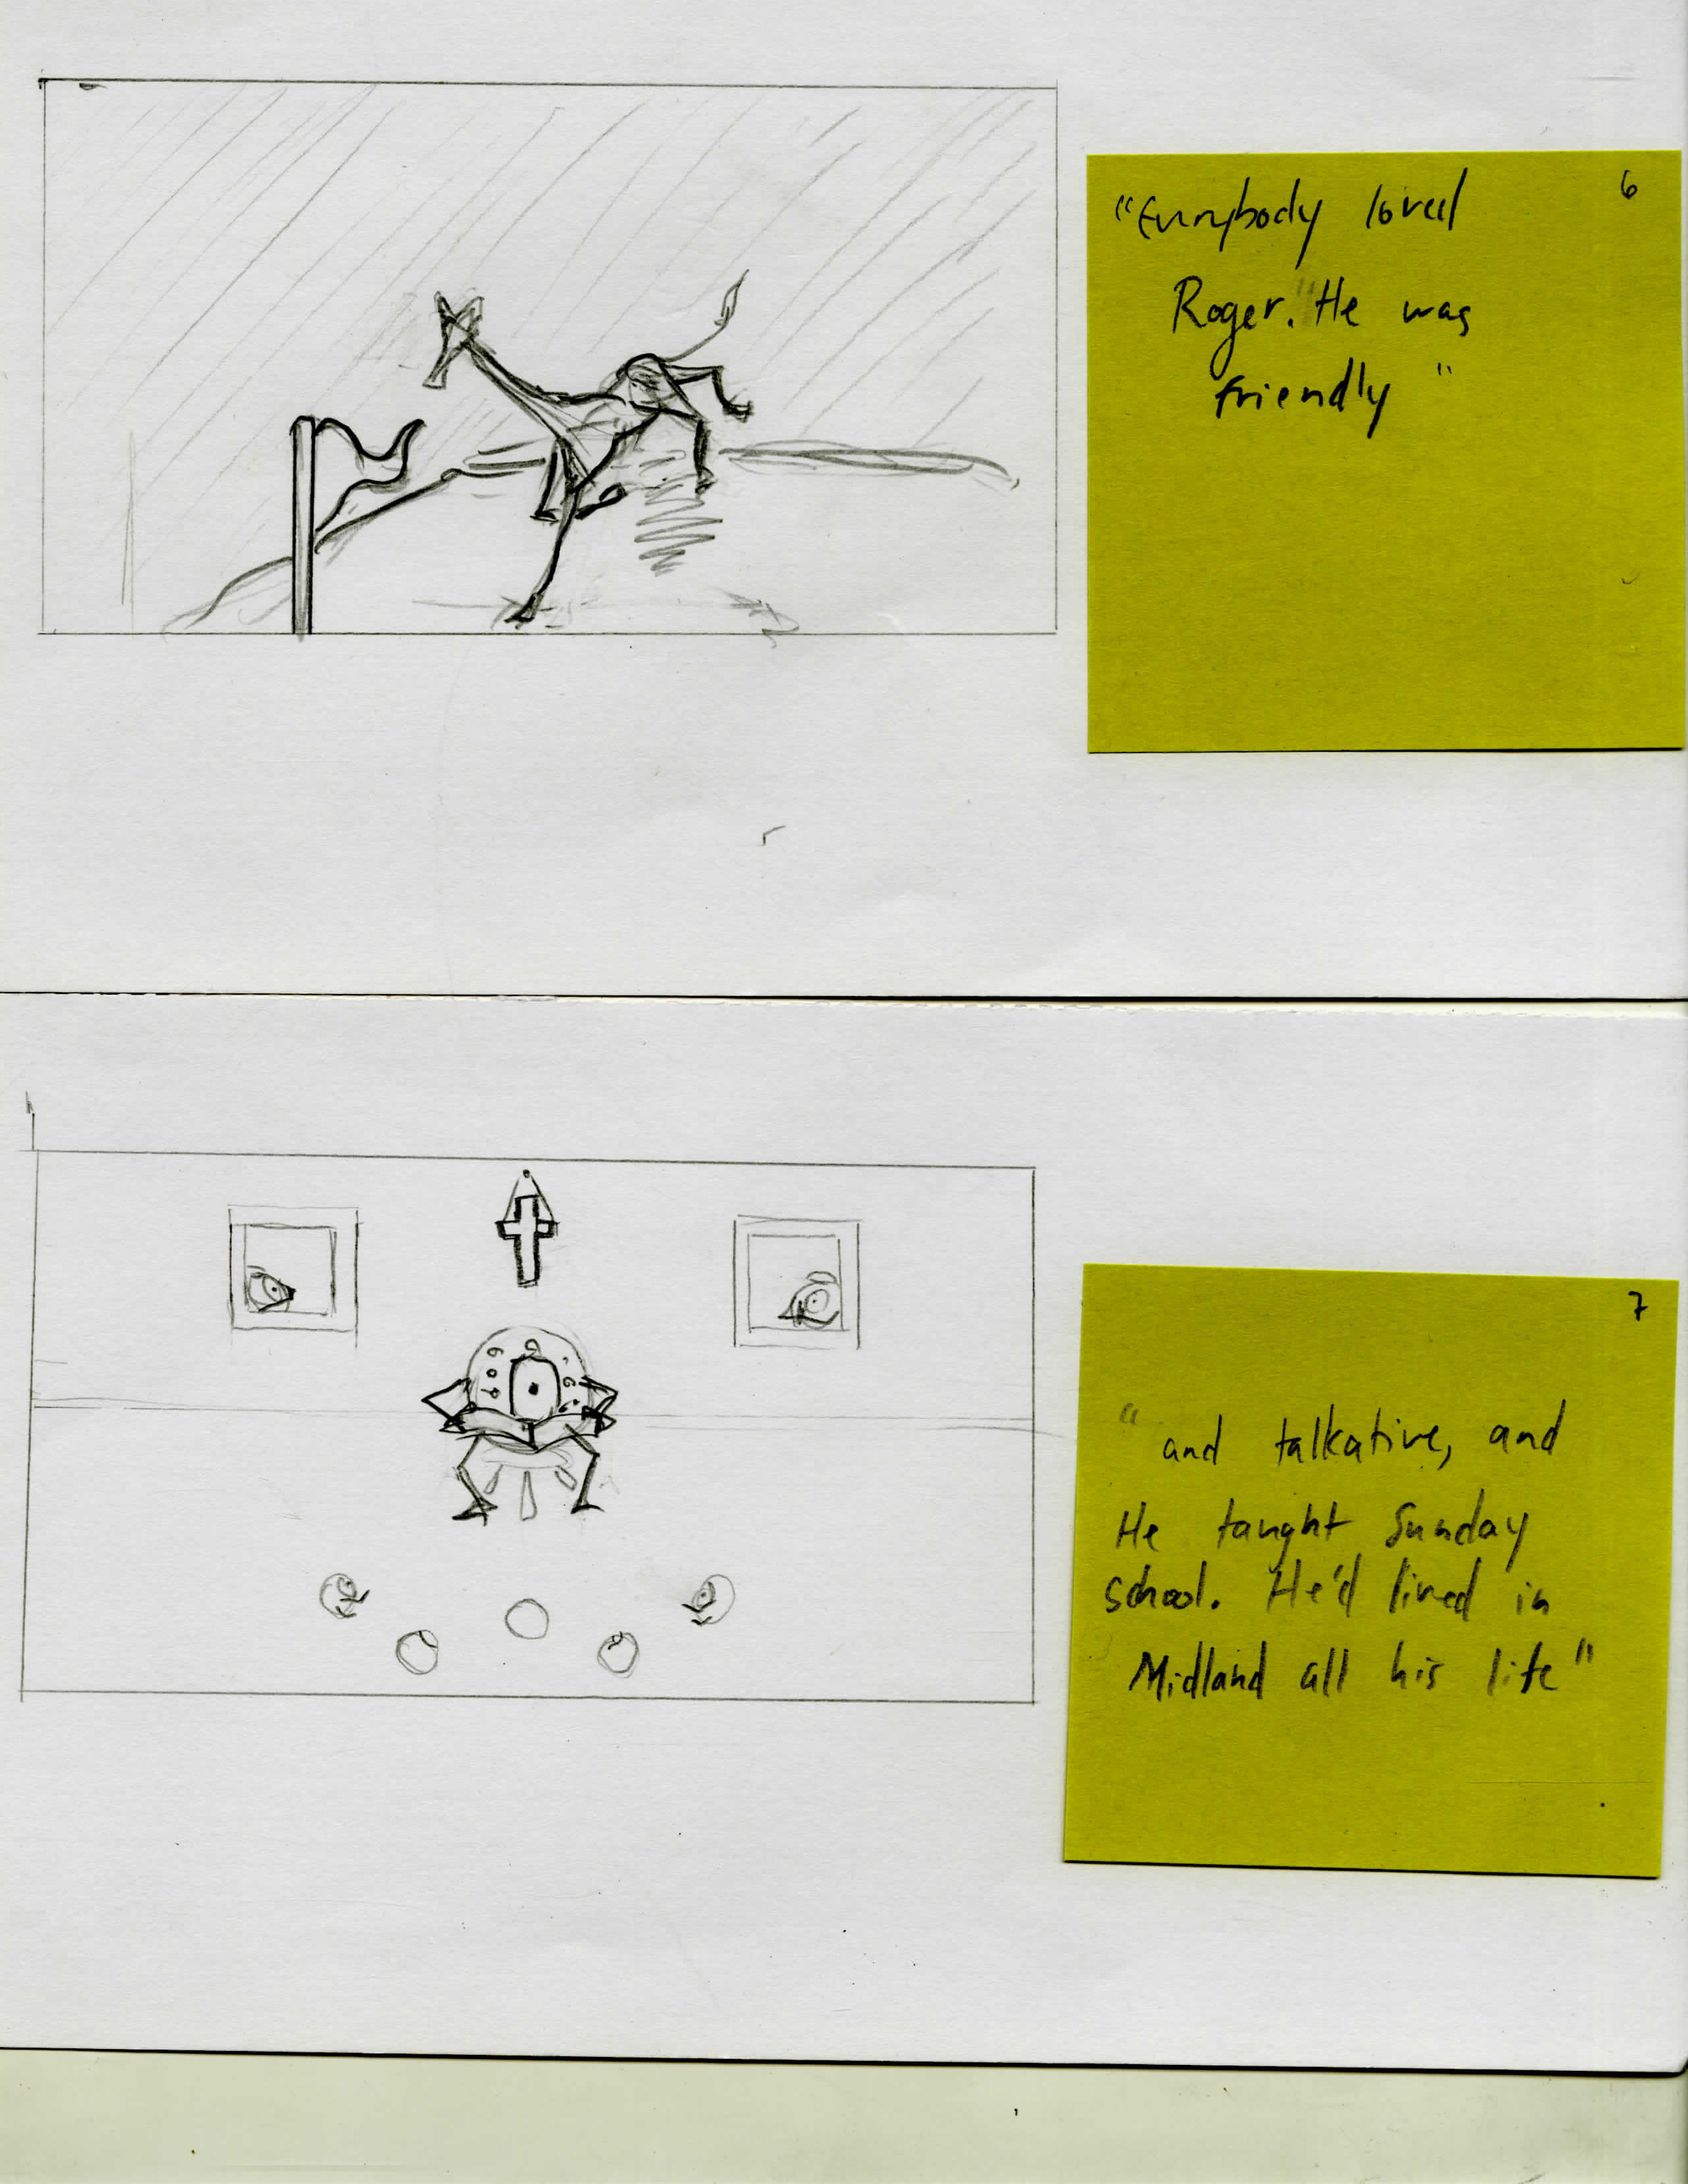 6
"Everybody loved
Roger. "He was
friendly"
7
"and talkative, and
He taught Sunday
school. He'd lived in
Midland all his life"